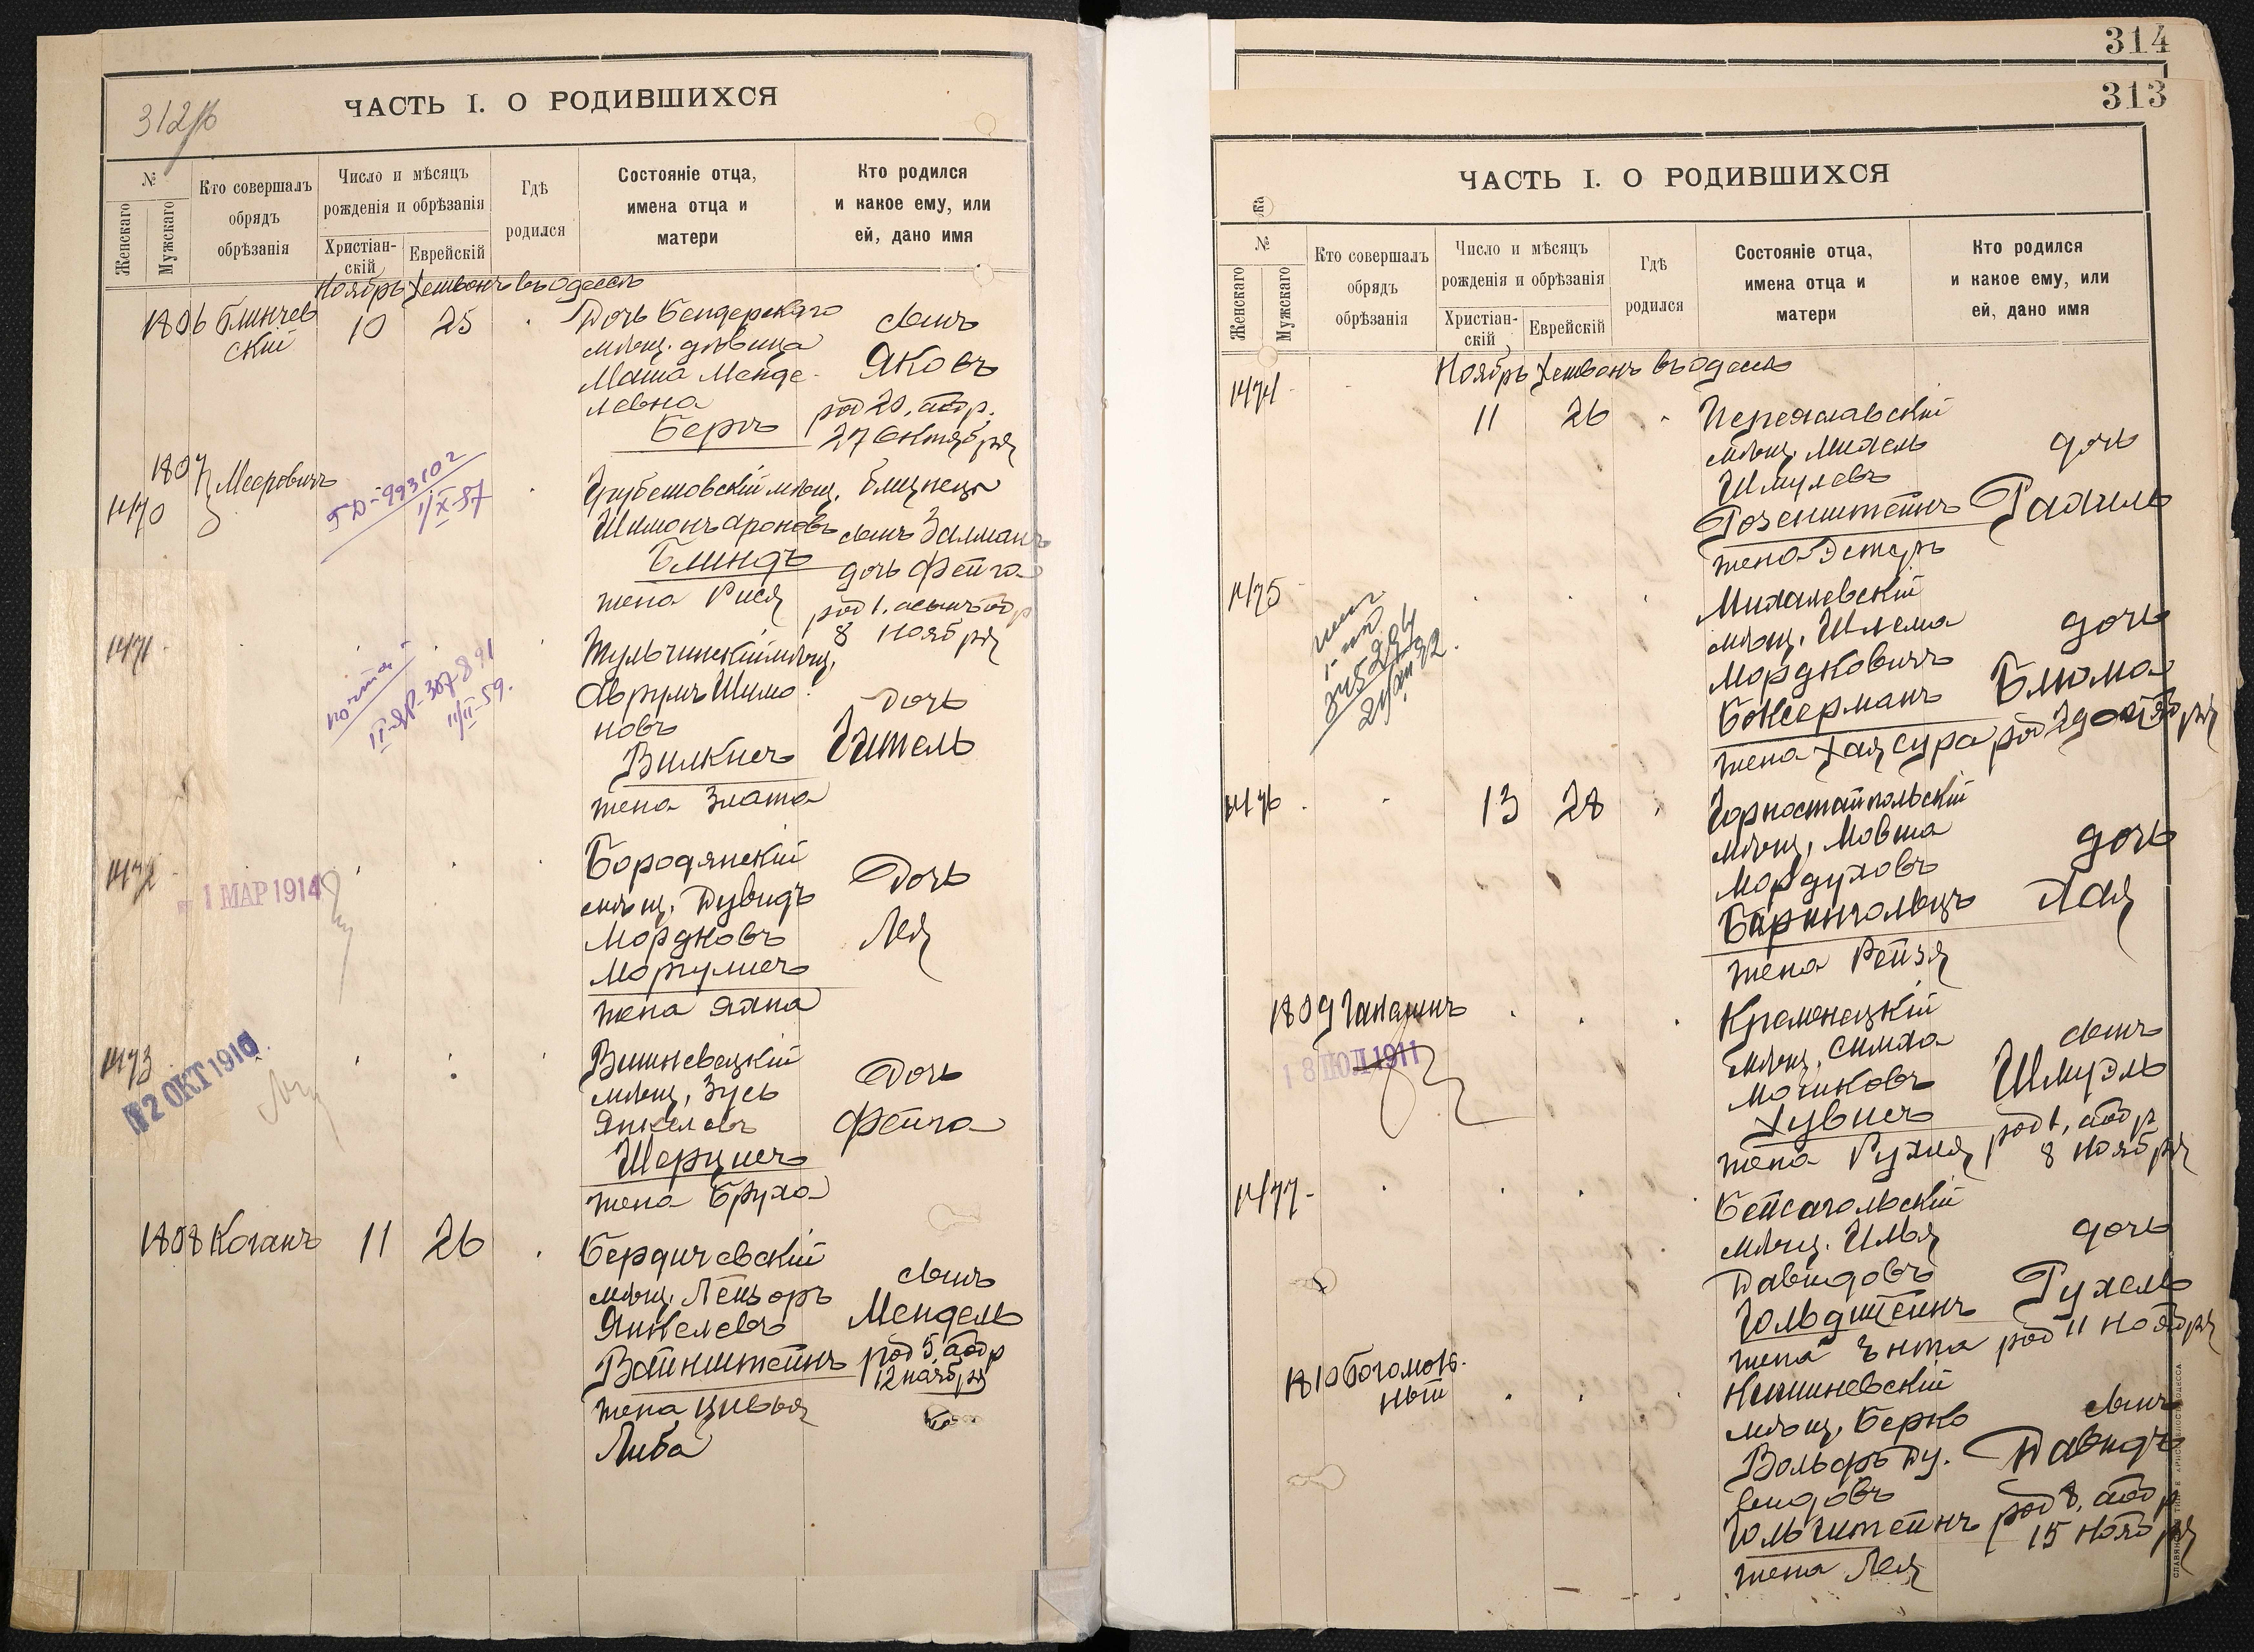 312об
ЧАСТЬ I. О РОДИВШИХСЯ
№
Женскаго
Мужскаго
Кто совершалъ
обрядъ
обрѣзанія
Число и мѣсяцъ
рожденія и обрѣзанія
Христіан-
скій
Еврейскій
Гдѣ
родился
Состояніе отца,
имена отца и
матери
Кто родился
и какое ему, или
ей, дано имя
Ноябрь Хешвонъ въ Одессѣ
1806 Блинчев
скій
10
25
Дочь Бендерскаго
мѣщ. дѣвица
Маша Менде-
левна
Беръ
сынъ
Яковъ
род 20, обр.
27 Октября
1807
1470
Мееровичъ
1/X-57
Грубешовскій мѣщ.
Шимонъ Ароновъ
Блиндъ
жена Рися
близнецы
сынъ Залманъ
дочь Фейга
род 1, а сынъ обр
8 Ноября
1471
почта
11/II-59.
Тульчинскій мѣщ.
Аврумъ Шимо
новъ
Вилкисъ
жена Злата
Дочь
Гитель
1472
1 МАР 1914
Бородянскій
мѣщ. Дувидъ
Мордковъ
Моргулисъ
жена Яхна
Дочь
Лея
1473
12 ОКТ 1910
Вишневецкій
мѣщ. Зусь
Янкелевъ
Шерцисъ
жена Бруха
Дочь
Фейга
1808 Коганъ
11
26
Бердичевскій
мѣщ. Лейзоръ
Янкелевъ
Вайнштейнъ
жена Цивья
Либа
сынъ
Мендель
род 5, обр
12 ноября
314
313
ЧАСТЬ I. О РОДИВШИХСЯ
№
Женскаго
Мужскаго
Кто совершалъ
обрядъ
обрѣзанія
Число и мѣсяцъ
рожденія и обрѣзанія
Христіан-
скій
Еврейскій
Гдѣ
родился
Состояніе отца,
имена отца и
матери
Кто родился
и какое ему, или
ей, дано имя
Ноябрь Хешвонъ въ Одессѣ
1474
11
26
Переяславскій
мѣщ. Михель
Шмулевъ
Розенштейнъ
жена Эстеръ
дочь
Рахиль
1475
Михалевскій
мѣщ. Шлема
Мордковичъ
Боксерманъ
жена Хая Сура
дочь
Блюма
род 29 октября
1476
13
28
Горностайпольскій
мѣщ. Мовша
Мордуховъ
Барингольцъ
жена Рейзя
дочь
Хая
1809 Гапаринъ
18 ІЮЛ 1911
Кременецкій
мѣщ. Симха
Мошковъ
Хувисъ
жена Рухля
сынъ
Шмуэль
род 1, обр
8 Ноября
1477
Бейсагольскій
мѣщ. Илья
Давидовъ
Гольдштейнъ
жена Ента
дочь
Рухель
род 11 ноября
1810 Богомоль-
ный
Кишиневскій
мѣщ. Берко
Вольфъ Ду-
видовъ
Гольдштейнъ
жена Лея
сынъ
Давидъ
род 8, обр
15 Ноября